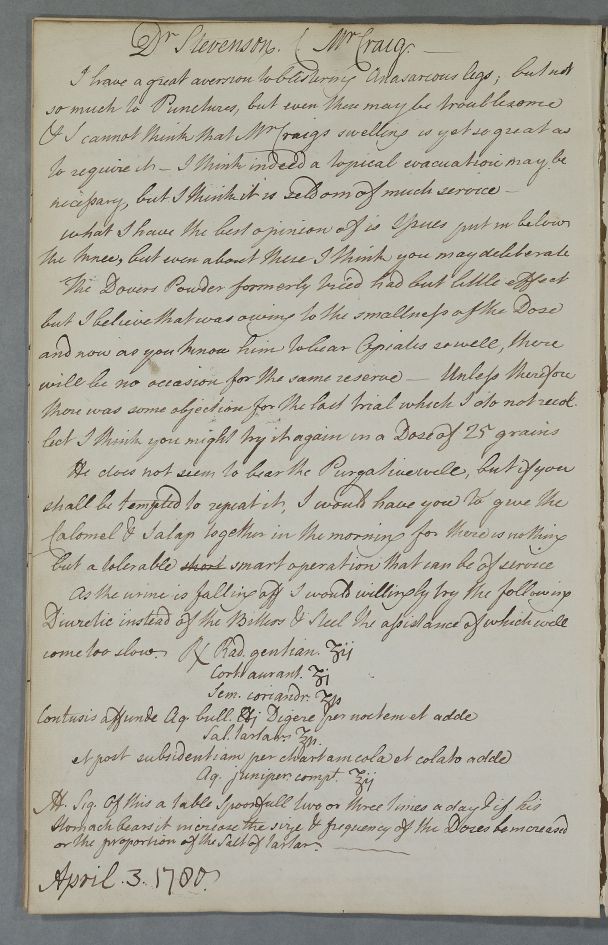 Dr Stevenson. ( Mr Craig. —
I have a great aversion to blistering Anasarcous legs; but not
so much to Punctures, but even these may be troublesome
& I cannot think that Mr Craigs swelling is yet so great as
to require it — I think indeed a topical evacuation may be
necessary, but I think it is seldom of much service —
what I have the best opinion of is Issues put in below
the knees, but even about these I think you may deliberate
The Dovers Powder formerly tried had but little effect
but I believe that was owing to the smallness of the Dose
and now as you know him to bear Opiates so well, there
will be no occasion for the same reserve — Unless therefore
there was some objection for the last trial which I do not recol-
lect I think you might try it again in a Dose of 25 grains
He does not seem to bear the Purgative well, but if you
shall be tempted to repeat it, I would have you to give the
Calomel & Jalap together in the morning for there is nothing
but a tolerable short smart operation that can be of service
As the urine is falling off I would willingly try the following
Diuretic instead of the Bitters & Steel the assistance of which will
come too slow. ℞ Rad. gentian. ʒij
Cort. aurant. ʒj
Sem. coriandr. ʒſs
Contusis affunde Aq. bull. ℔j Digere per noctem et adde
Sal. tartar. ʒſs.
et post subsidentiam per chartam cola et colato adde
Aq. juniper. compt. ℥ij
M. Sig. Of this a table spoonfull two or three times a day & if his
stomach bears it increase the size & frequency of the Doses be increased
or the proportion of the Salt of tartar.
April. 3. 1780.